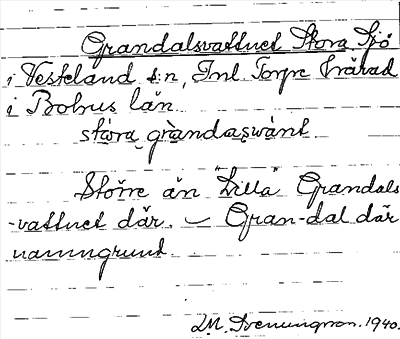 Grandalsvattnet Stora Sjö
i Vesteland s:n, Inl Torpe härad
i Bohus län
stora grandaswant
Större än "Lilla" Grandals
-vattnet där. – Gran-dal där
namngrund
1940.